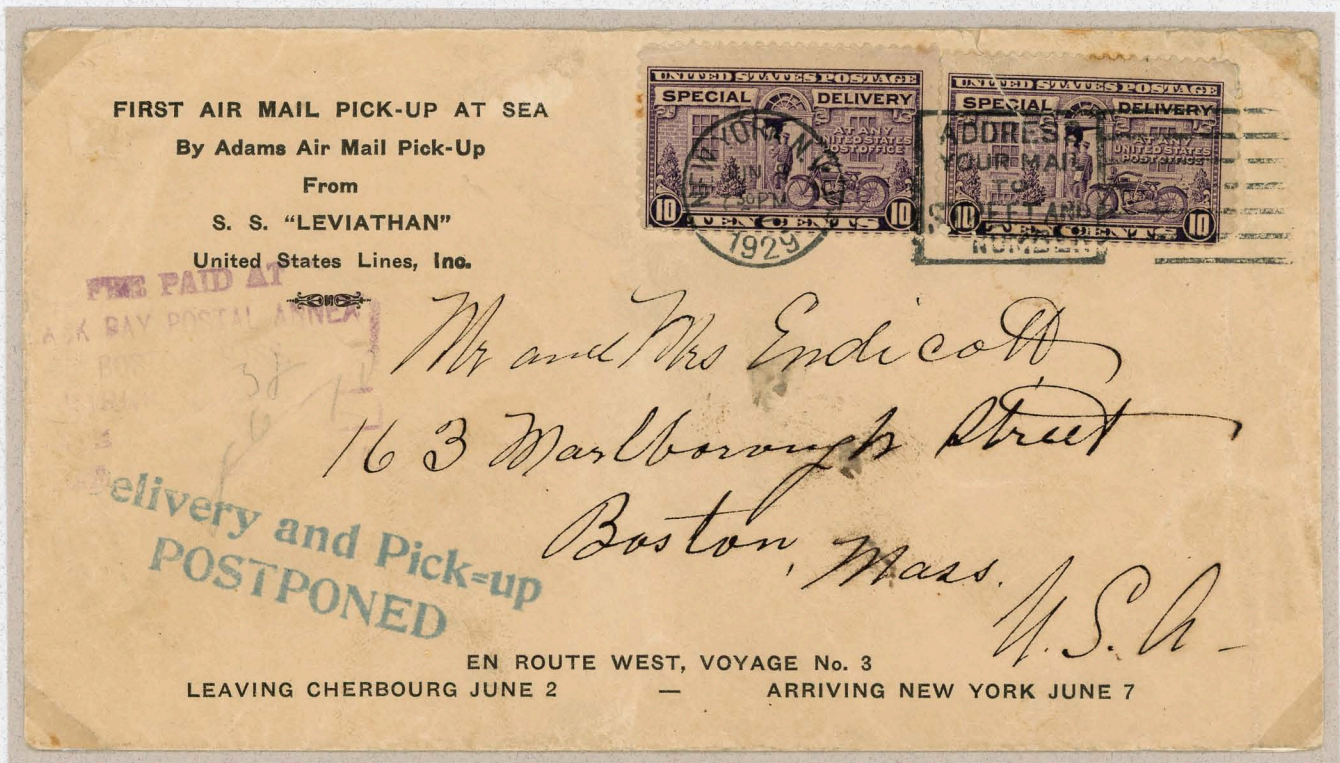 FIRST AIR MAIL PICK-UP AT SEA
By Adams Air Mail Pick-Up
From
S. S. “LEVIATHAN”
United States Lines, Inc.
UNITED STATES POSTAGE
SPECIAL DELIVERY
AT ANY
UNITED STATES
POST OFFICE
10 TEN CENTS 10
UNITED STATES POSTAGE
SPECIAL DELIVERY
AT ANY
UNITED STATES
POST OFFICE
10 TEN CENTS 10
NEW YORK, N.Y.
JUN 8
730PM
1929
ADDRESS
YOUR MAIL
TO
STREET AND
NUMBER
FEE PAID AT
BAY POSTAL ANNEX
38
Mr and Mrs Endicott
163 Marlborough Street
Boston, Mass.
U.S.A-
elivery and Pick=up
POSTPONED
EN ROUTE WEST, VOYAGE No. 3
LEAVING CHERBOURG JUNE 2 — ARRIVING NEW YORK JUNE 7